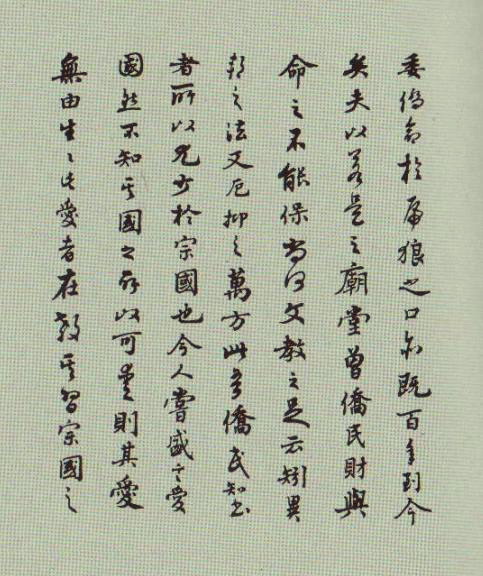 委僑命於虎狼之口亦既百年到今
矣夫以若是之廟堂曾僑民財與
命之不能保尚何文教之足云矧異
邦之法又厄抑之萬方此僑民知書
者所以尤少於宗國也今人嘗盛言愛
國然不知其國之所以可愛則其愛
無由生〻其愛者在教其習宗國之